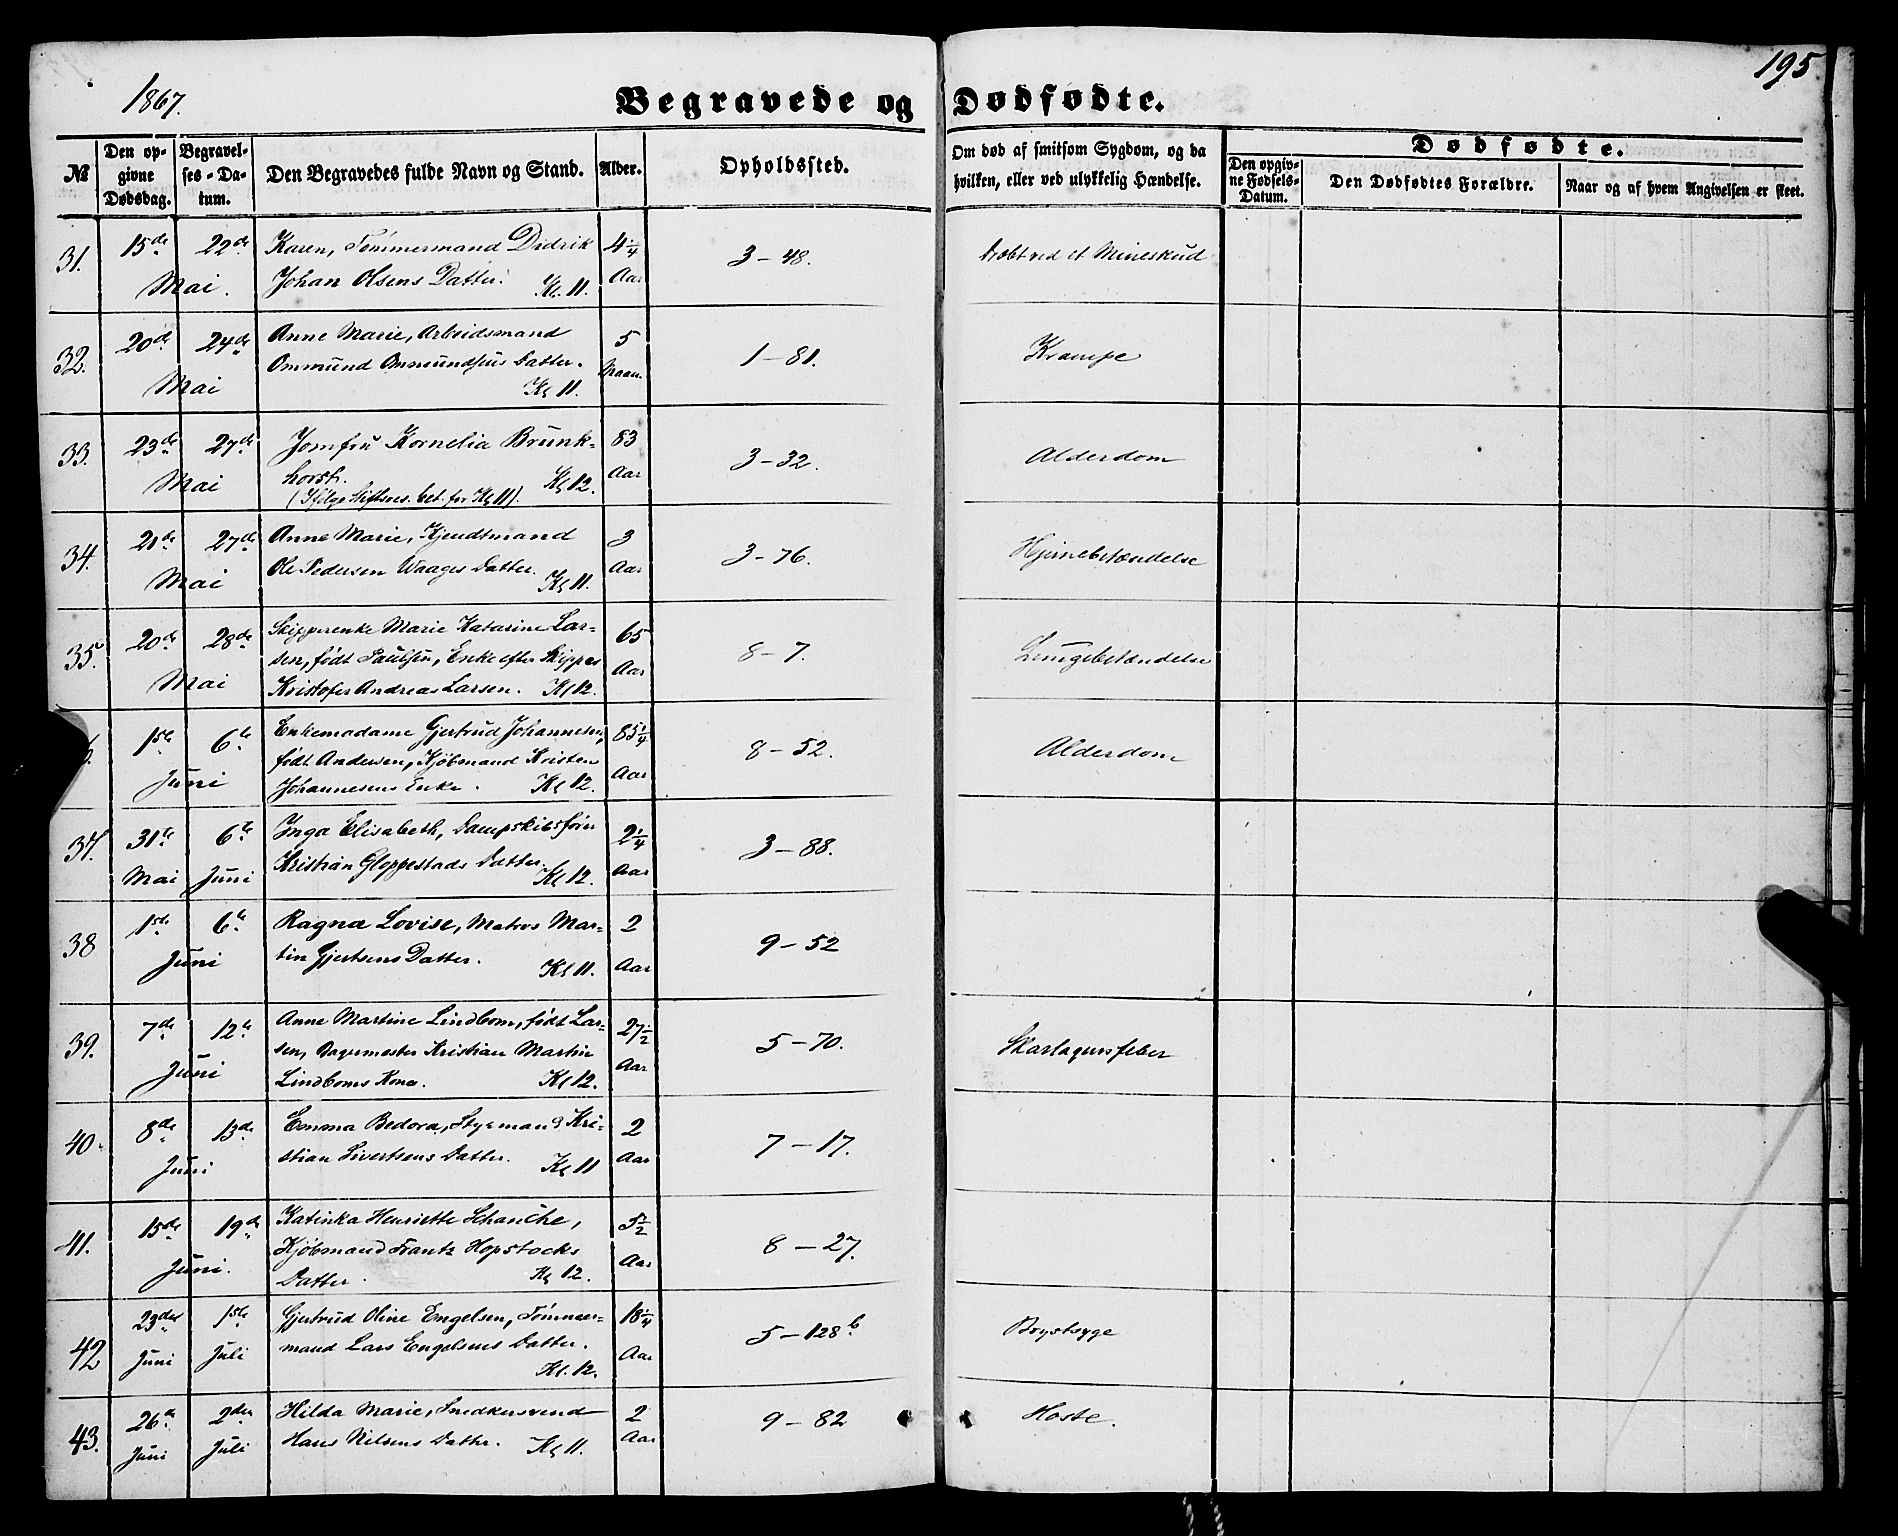 1867.
195
Begravede og Dødfødte.
№
Den opgivne Dødsdag.
Begravelses-Datum.
Den Begravedes fulde Navn og Stand.
Alder.
Opholdssted.
Om død af smitsom Sygdom, og da hvilken, eller ved ulykkelig Hændelse.
Dødfødte.
Den opgivne Fødsels-Datum.
Den Dødfødtes Forældre.
Naar og af hvem Angivelsen er skeet.
31. 15de 22de Karen, Tømmermand Didrik 4 1/4 3-48. Dræbt ved et Mineskud
Mai. Johan Olsens Datter. Kl. 11. Aar
32. 20de 24de Anne Marie, Arbeidsmand 5 1-81. Krampe
Mai Ommund Ommundsens Datter. Maan.
Kl 11.
33. 23de 27de Jomfru Kornelia Brunk- 83 3-32. Alderdom
Mai horst. Kl 12. Aar
(Ifølge Stiftsres. bet. for Kl 11).
34. 21de 27de Anne Marie, Kjendtmand 3 3-76. Hjernebetændelse
Mai Ole Pedersen Waages Datter. Kl 11. Aar
35. 20de 28de Skipperenke Marie Katarine Lar- 65 8-7. Lungebetændelse
sen, født Paulsen, Enke efter Skipper Aar
Mai Kristofer Andreas Larsen. Kl 12.
1ste 6te Enkemadame Gjertrud Johannesen, 85 1/4 8-52. Alderdom
født Andersen, Kjøbmand Kristen Aar
Juni Johannesens Enke. Kl 12.
37. 31te 6te Inga Elisabeth, Dampskibsfører 2 1/4 3-88.
Mai Juni Kristian Gloppestads Datter. Kl 12. Aar
38 1ste 6te Ragna Lovise, Matros Mar- 2 9-52
Juni tin Gjertsens Datter. Kl 11. Aar
39. 7de 12te Anne Martine Lindbom, født Lar- 27 1/2 5-70. Skarlagensfeber
sen, Bagermester Kristian Martin Aar
Juni Lindboms Kone. Kl 12.
40. 8de 13de Emma Bedora, Styrmand Kri- 2 7-17.
Juni stian Sivertsens Datter. Kl 11 Aar
41. 15de 19de Katinka Henriette Schanche, 5 1/2 8-27.
Kjøbmand Frantz Hopstocks Aar
Juni. Datter. Kl 12.
42 23de 1ste Gjertrud Oline Engelsen, Tømmer- 18 1/4 5-128b Brystsyge
Juni Juli mand Lars Engelsens Datter. Aar
Kl. 12.
43. 26de 2den Hilda Marie, Snedkersvend 2 9-82 Hoste.
Juni Juli Hans Nilsens Datter. Kl 11. Aar